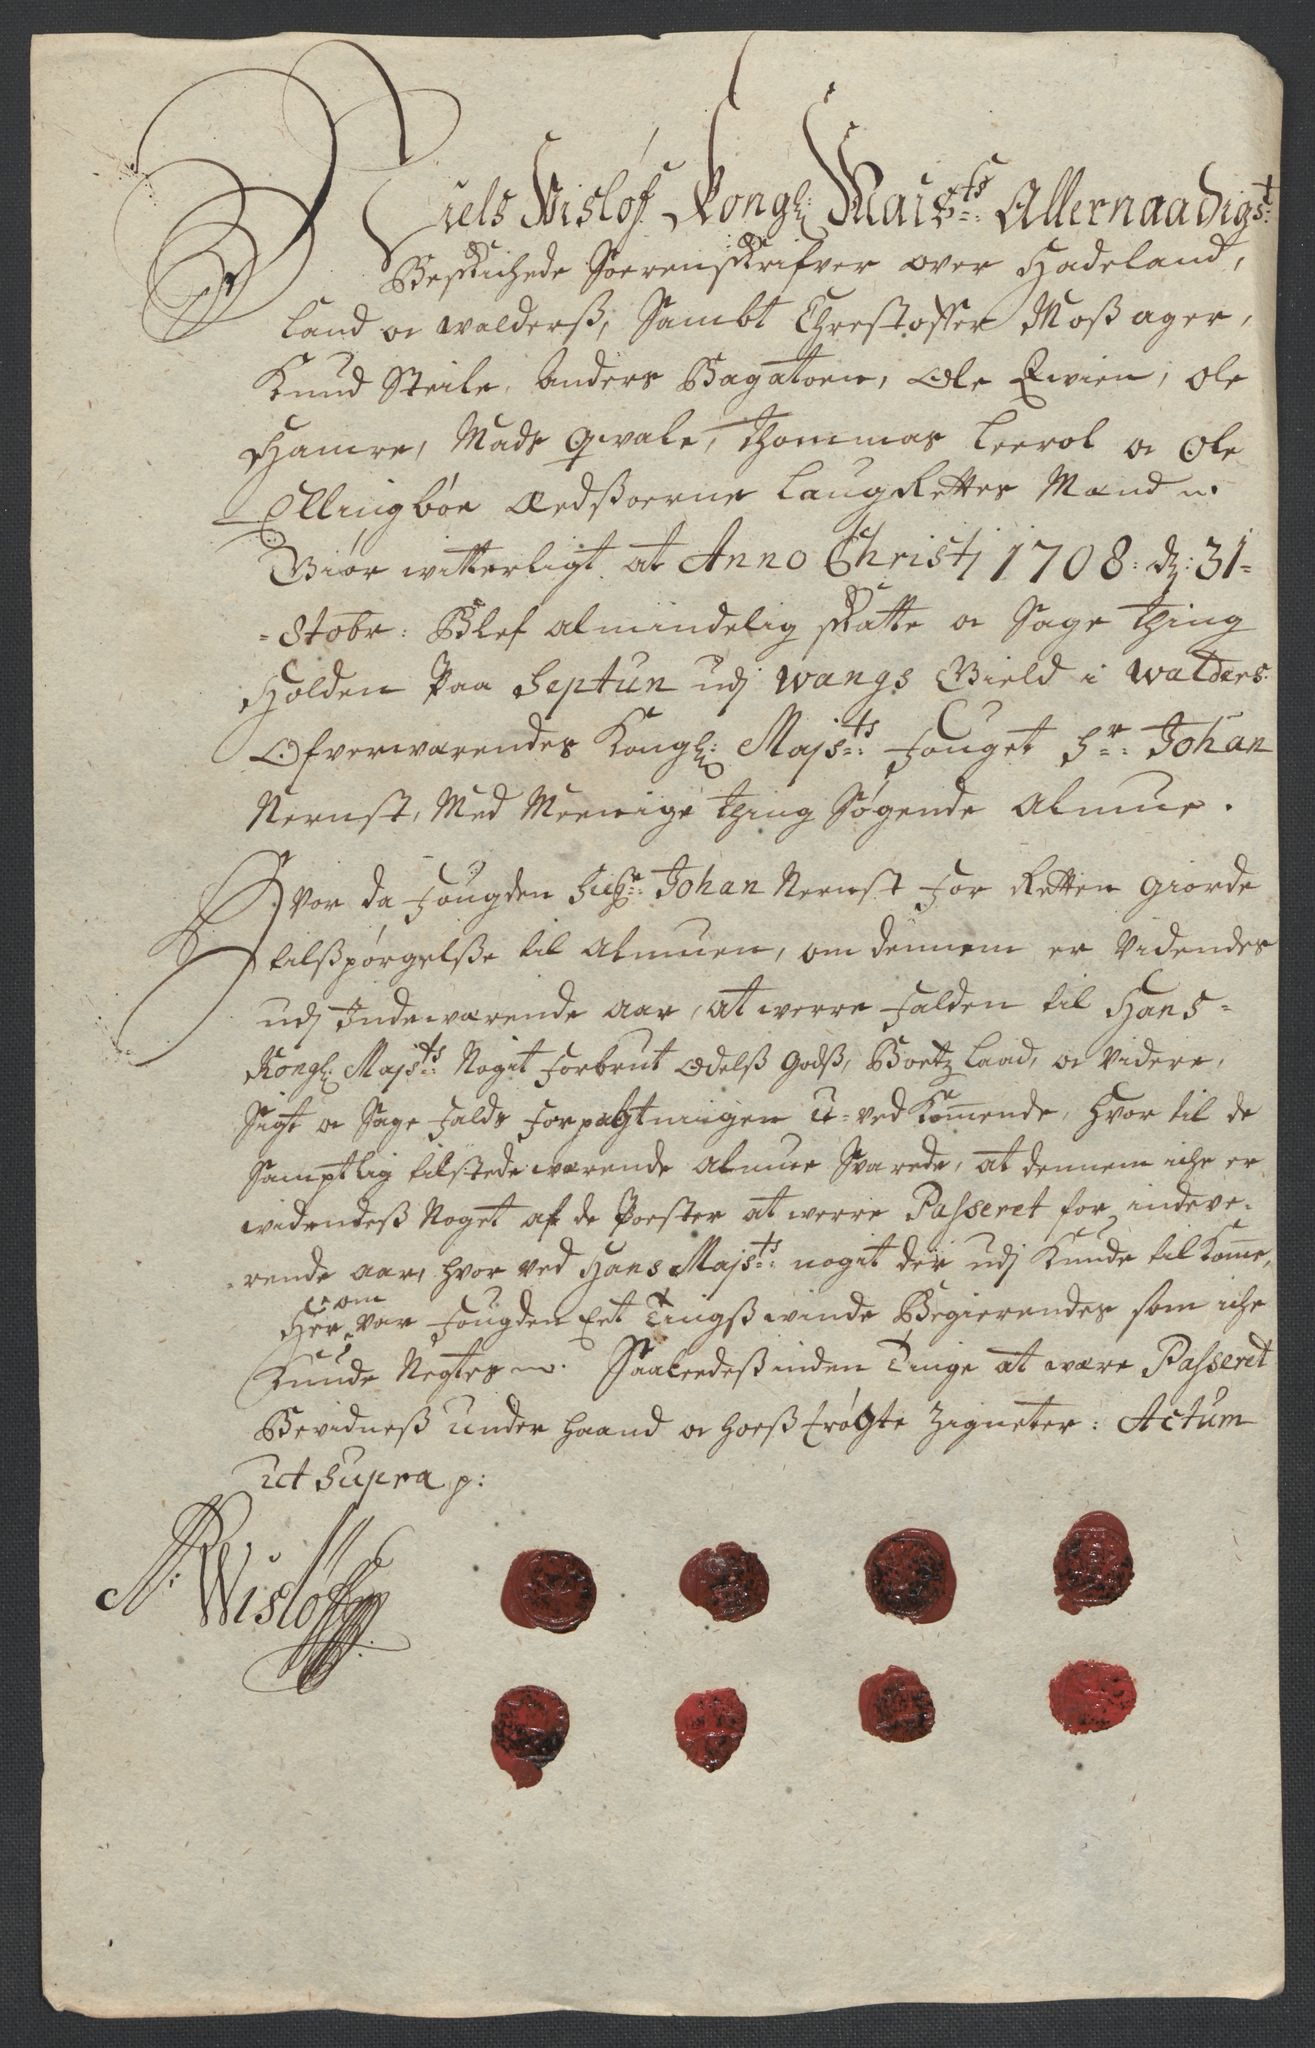 Niels Wisløf Kongl: Maist:s Allernaadigst:
Beskichede Soerenskrifver over Hadeland,
Land oc Walderß, Sambt Christoffer Moßager,
Knud Steile, Anders Bagatoen, Ole Qvien, Ole
Hamre, Mads Qvale, Thommas Leerol oc Ole
Ellingbøe Ædßoerne Laug Rettes Mænd
Giør witterligt at Anno Christj 1708: d: 31=
=Octobr: Blef almindelig Skatte oc Sage Thing
Holden Paa Heptun udj Wangs Gield i Walders
Ofverwærendes Kongl: Majst:s Fouget Sr: Johan
Nernst, Med Meenige Thing Søgende Almue.
Hvor da Fougden Sr: Johan Nernst For Retten giorde
tilßpørgelße til Almuen, om dennem er Videndes
udj Indeværende aar, at werre Falden til Hans
Kongl: Majst:s Nogit Forbrut Odelß Godß, Boetz laad, oc Videre,
Sigt oc Sage Falds Forpagtningen U-ved Kommende, Hvor til de
Samptlig tilstedeværende Almue Svarede, at dennem iche er
widendeß Noget af de Poester at werre Passeret for indeve-
-rende aar, hvor ved Hans Majst:s nogit der udj Kunde tilkomme,
Her om var Fougden Eet Tingß winde Begierendes som iche
Kunde Negtes. Saaleedeß inden Tinge at være Passeret
Bevidneß under haand oc hoeß trøgte Zigneter: Actum
ut supra p:
N: Wisløff